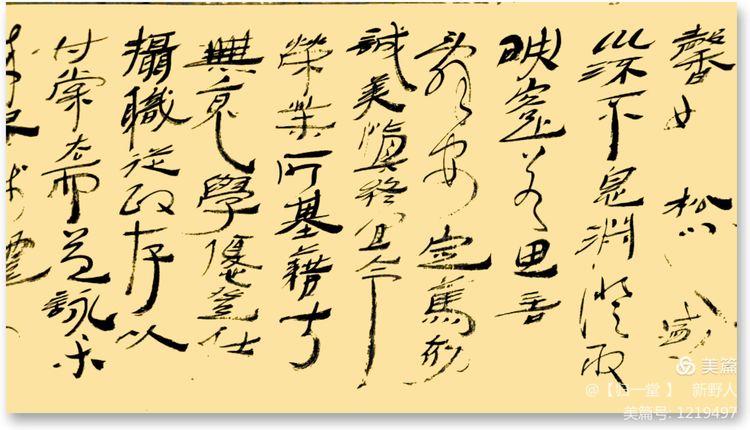 馨如松之盛
川流不息淵澄取
映容止若思言
辭安定篤初
誠美慎終宜令
榮業所基藉甚
無竟學優登仕
攝職從政存以
甘棠去而益詠樂
美篇
@【 一堂 】 新野人
美篇号: 1219497